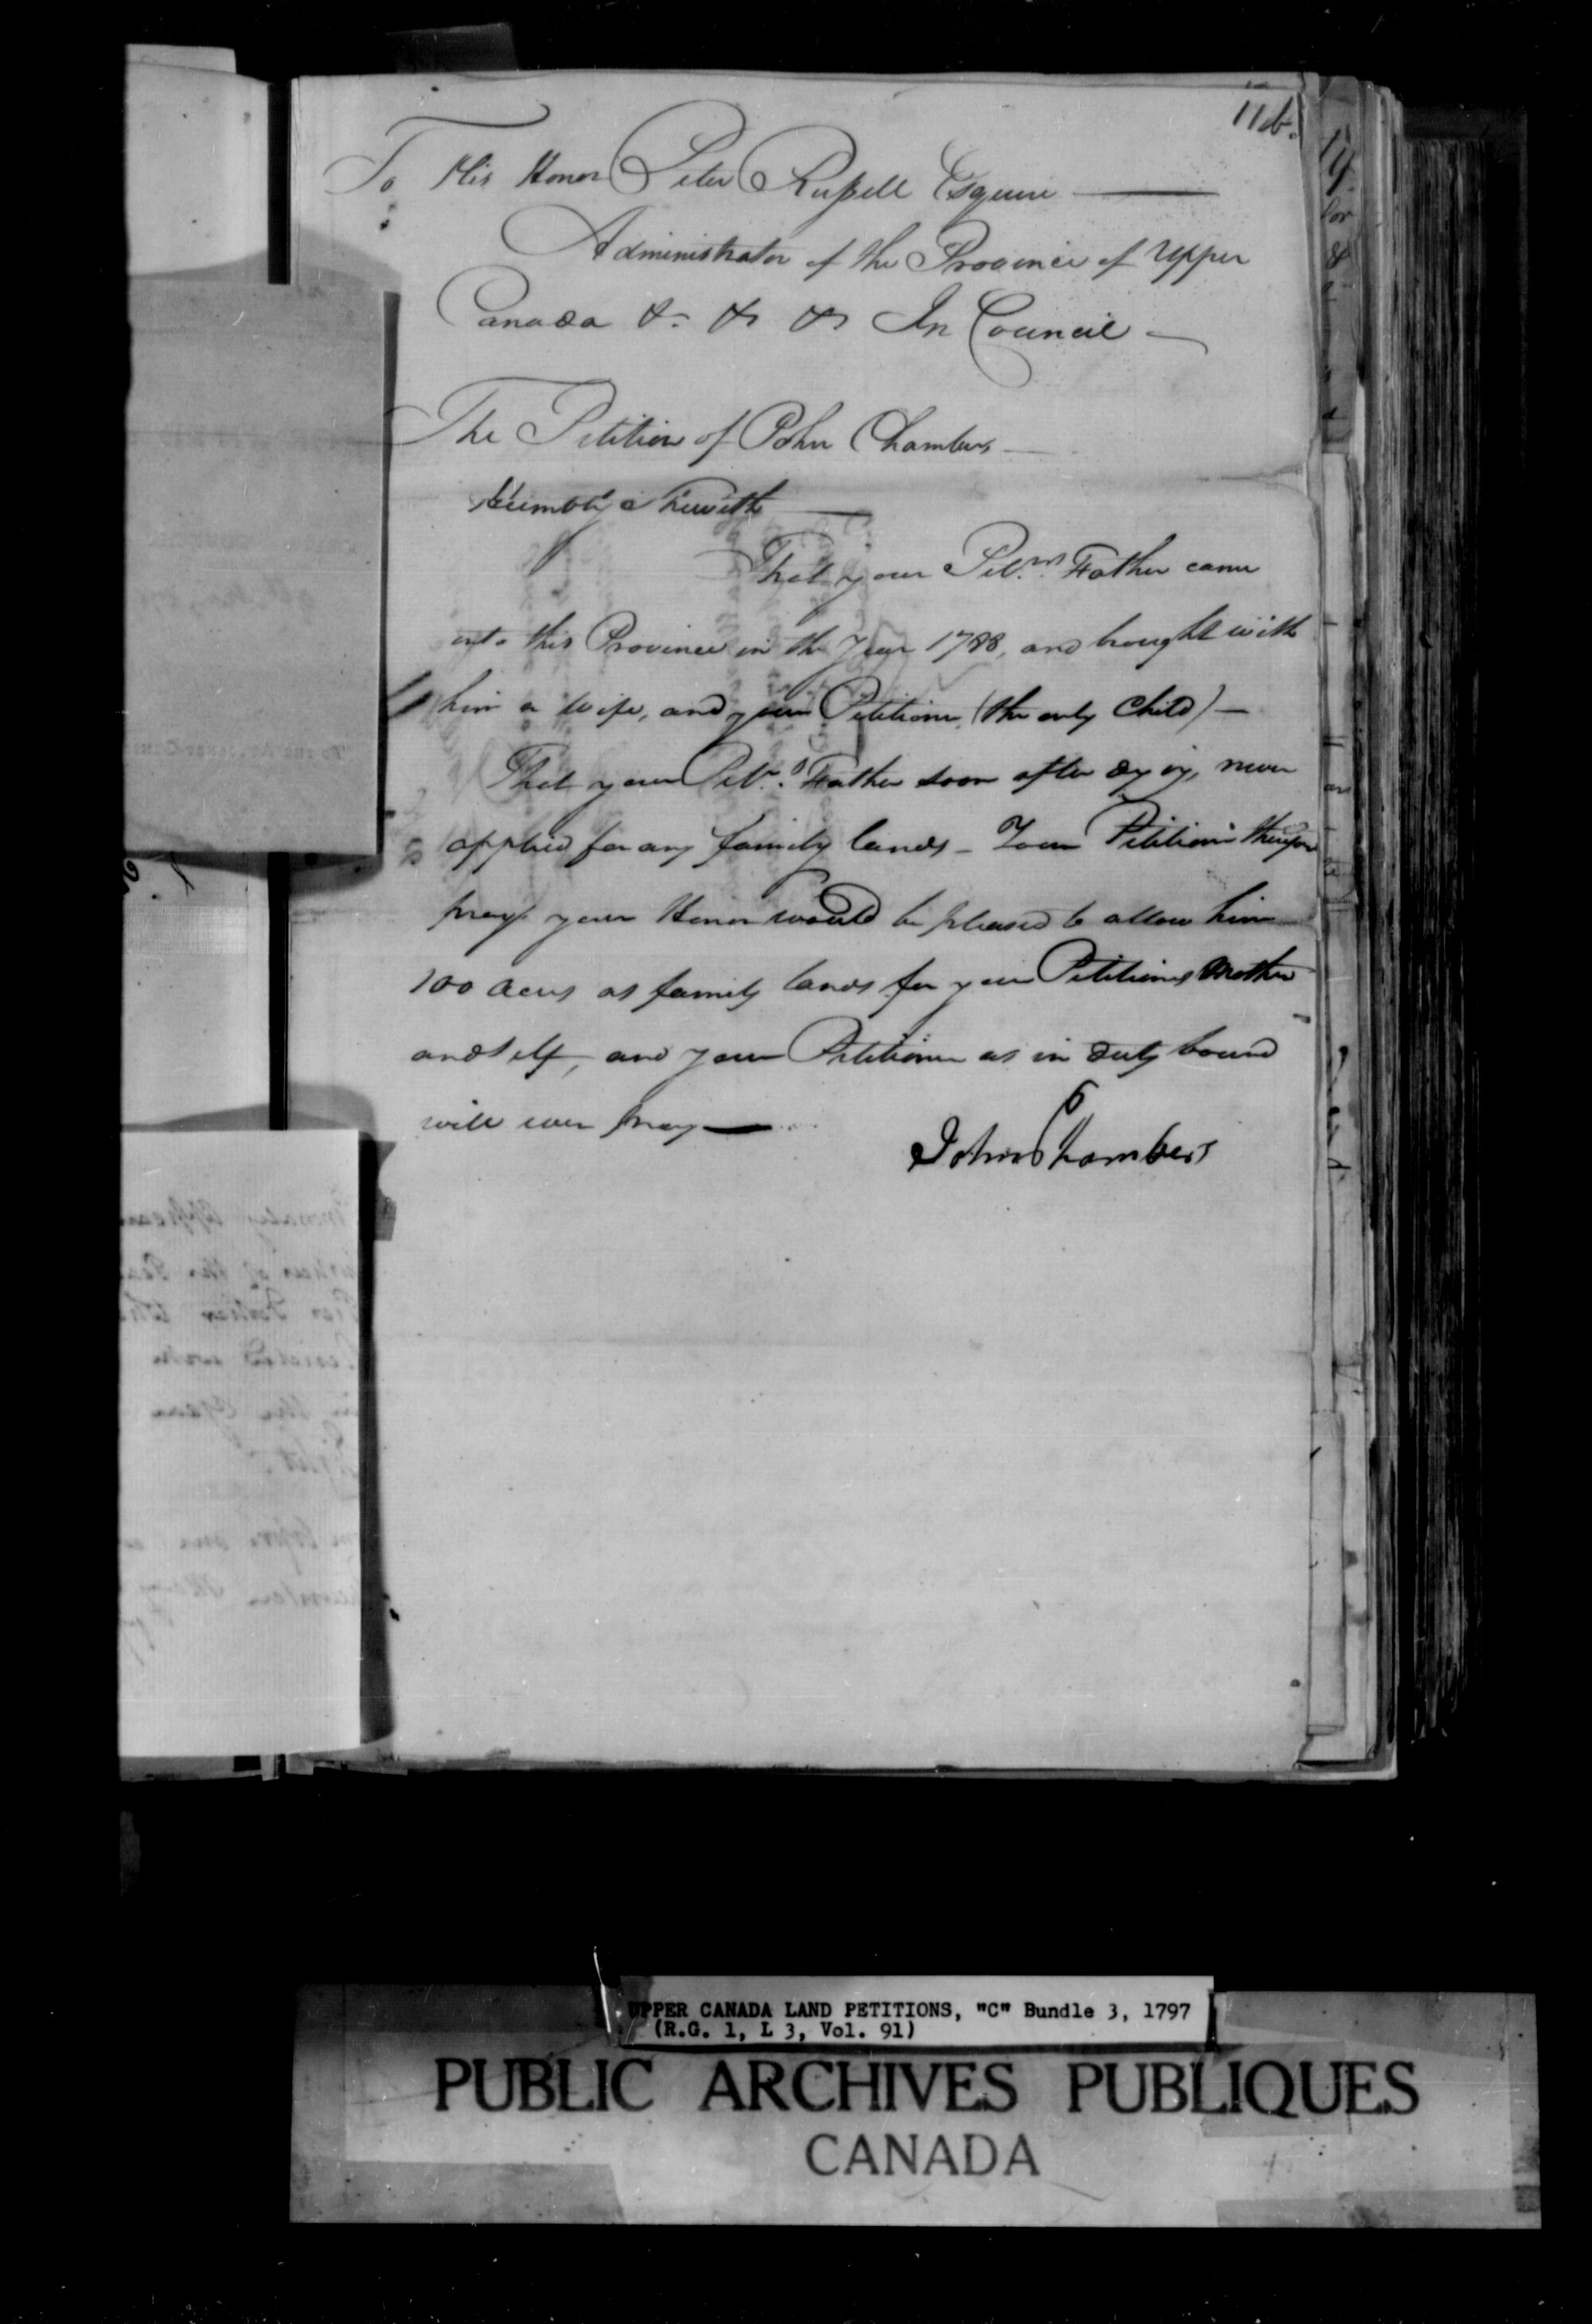 11b.
To His Honor Peter Russell Esquire
Administrator of the Province of Upper
Canada &c &c &c In Council
The Petition of John Chambers
Humbly Sheweth
That your Petrs. Father came
into this Province in the Year 1788, and brought with
him a wife, and your Petitioner (the only Child) —
That your Petr.s Father soon after dying, never
applied for any family lands — Your Petitioner therefore
prays your Honor would be pleased to allow him
100 Acres as family lands for your Petitioners Mother
and self, and your Petitioner as in duty bound
will ever pray —
John Chambers
UPPER CANADA LAND PETITIONS, "C" Bundle 3, 1797
(R.G. 1, L 3, Vol. 91)
PUBLIC ARCHIVES PUBLIQUES
CANADA